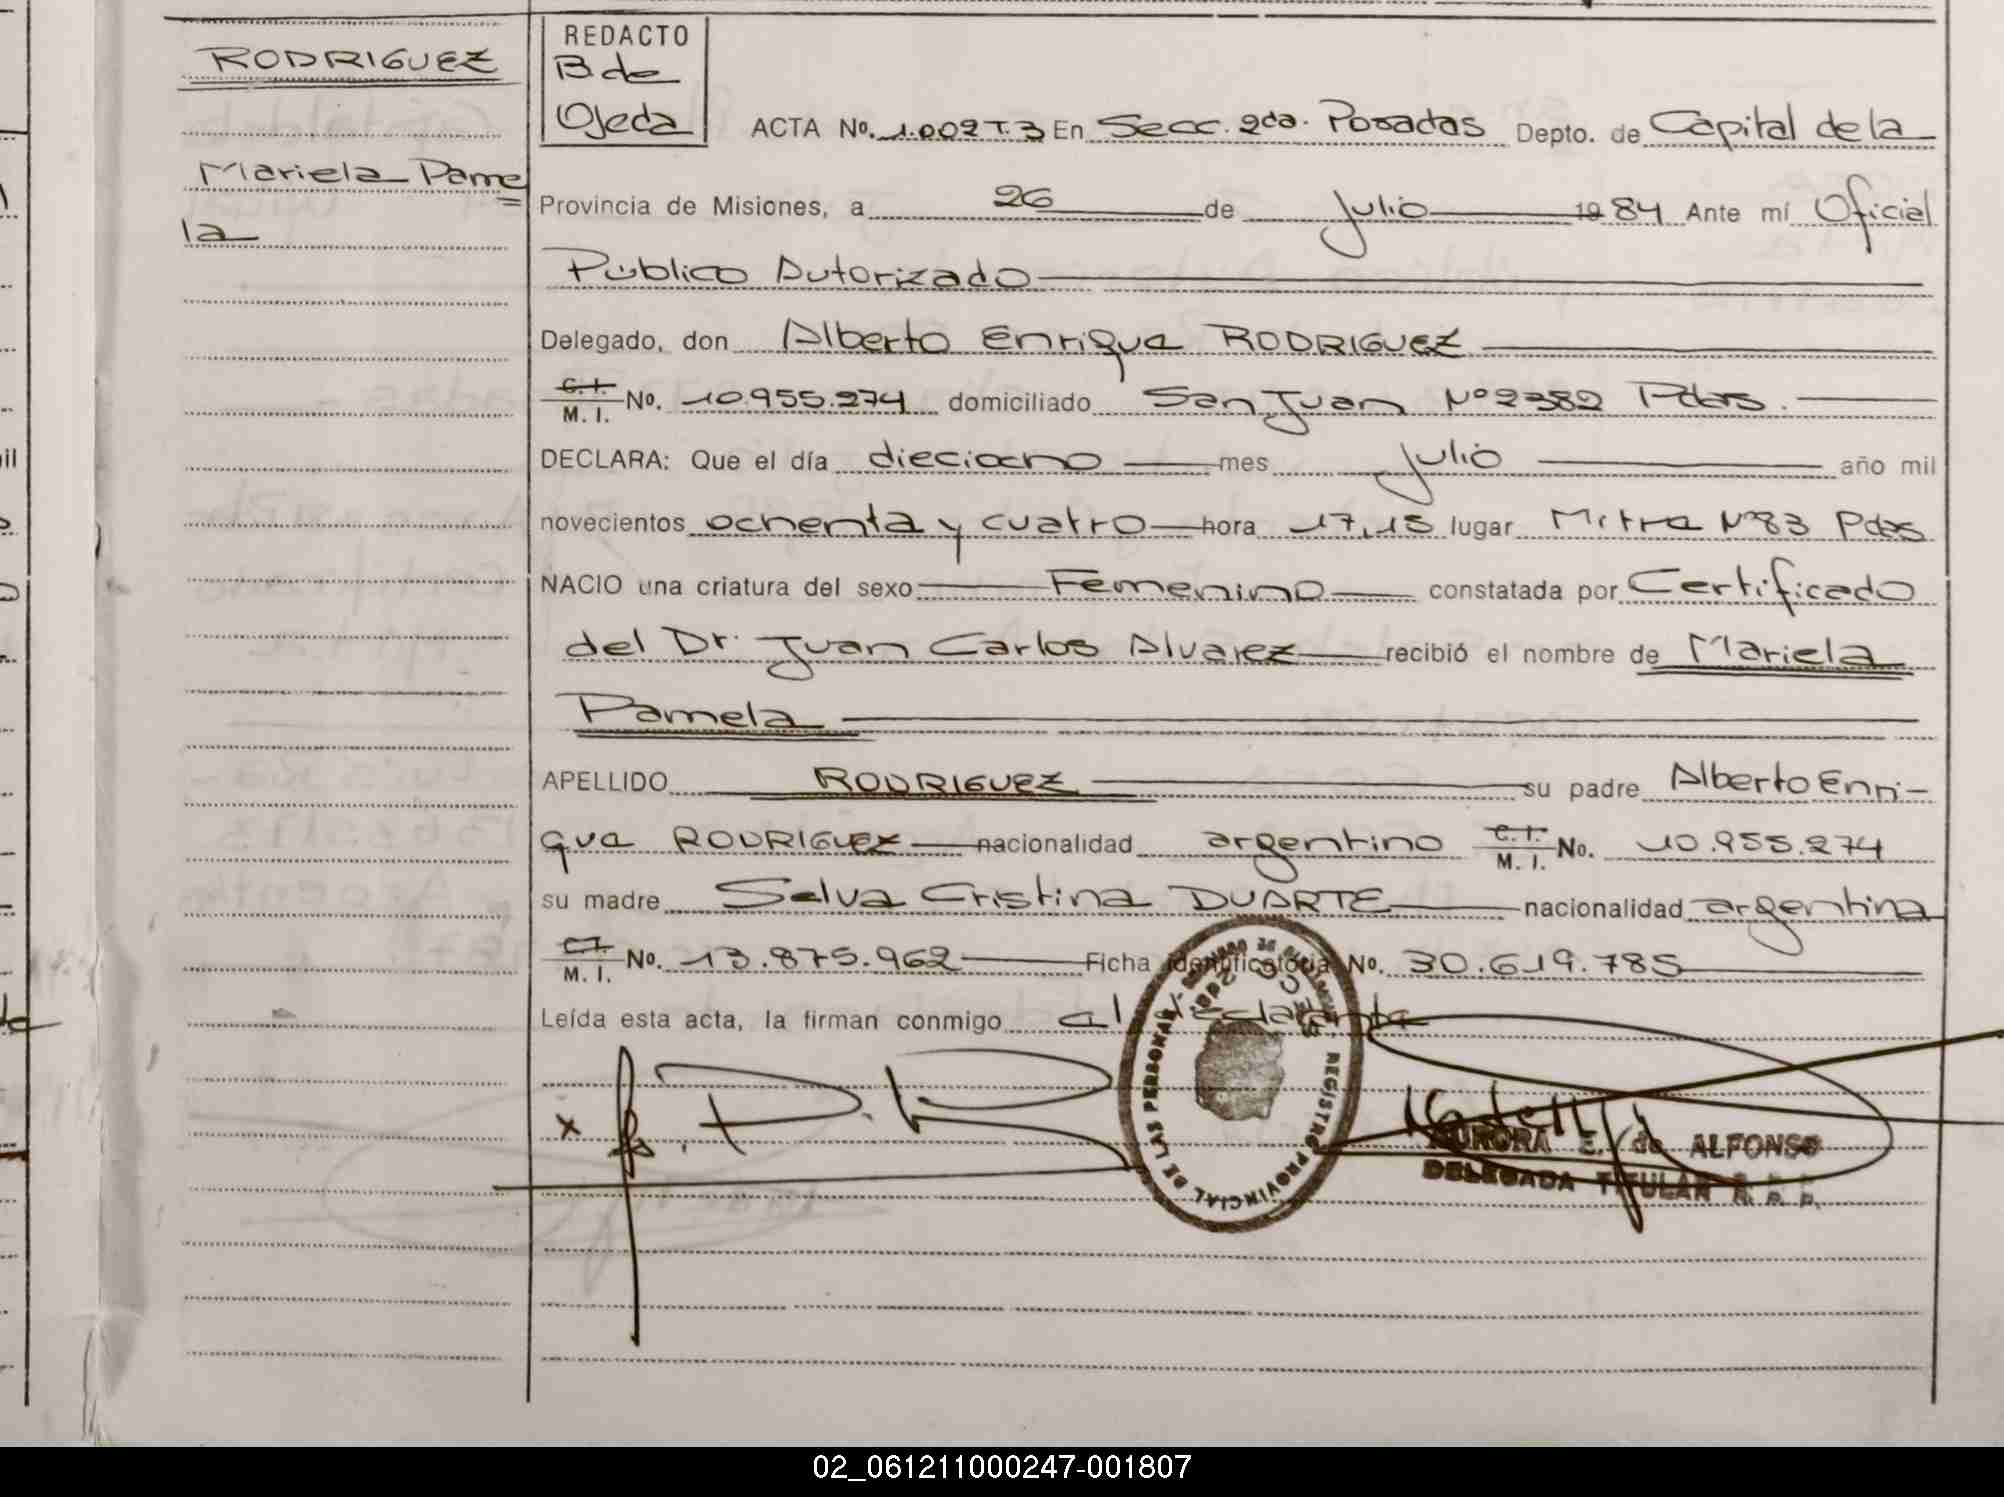 RODRIGUEZ
Mariela Pame
la
REDACTO
B. de
Ojeda
ACTA No. 1.002 T.3 En Secc. 2da. Posadas Depto. de Capital de la
Provincia de Misiones, a 26 de Julio 1984 Ante mí Oficial
Público Autorizado
Delegado, don Alberto Enrique RODRIGUEZ
C. I. M. I. No. 10.955.274 domiciliado San Juan Nº 2382 Pdas.
DECLARA: Que el día dieciocho mes Julio año mil
novecientos ochenta y cuatro hora 17,15 lugar Mitre Nº 83 Pdas
NACIO una criatura del sexo Femenino constatada por Certificado
del Dr. Juan Carlos Alvarez recibió el nombre de Mariela
Pamela
APELLIDO RODRIGUEZ su padre Alberto Enri-
que RODRIGUEZ nacionalidad argentino C. I. M. I. No. 10.955.274
su madre Selva Cristina DUARTE nacionalidad argentina
C.I. M. I. No. 13.875.962 Ficha identificatoria No. 30.619.785
Leída esta acta, la firman conmigo el declarante
x
REGISTRO PROVINCIAL DE LAS PERSONAS
AURORA E. de ALFONSO
DELEGADA TITULAR R. P. P.
02_061211000247-001807